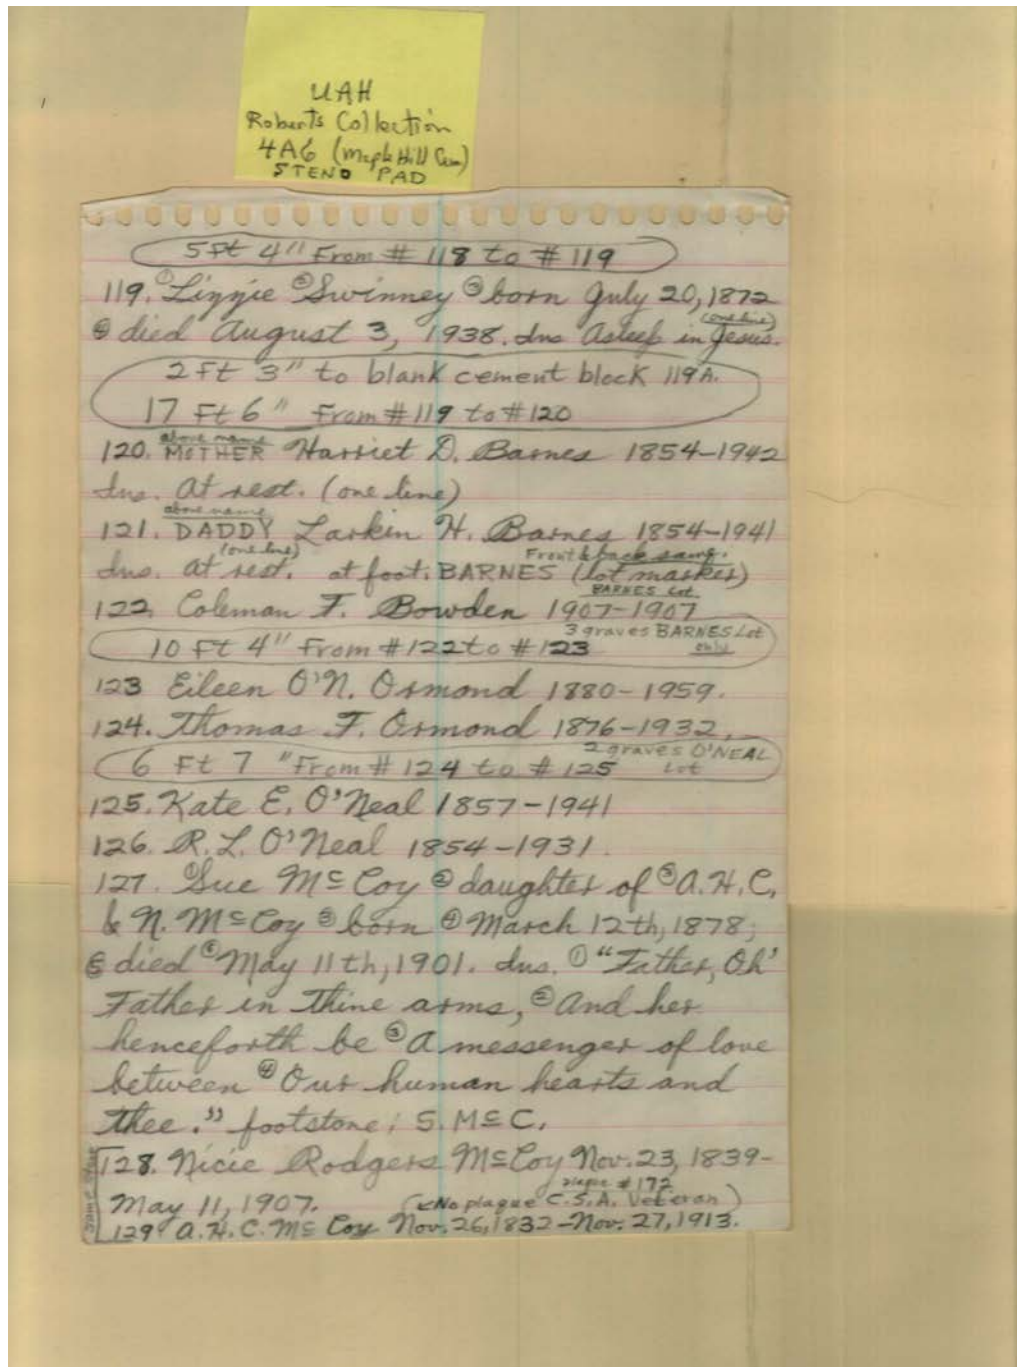 UAH
Roberts Collection
4A6 (Maple Hill Cem)
STENO PAD
5 Ft 4" From # 118 to # 119
119. ① Lizzie ② Swinney ③ born July 20, 1872
(one line)
④ died August 3, 1938. Ins Asleep in Jesus.
2 Ft 3" to blank cement block 119A.
17 Ft 6" From # 119 to # 120
above name
120. MOTHER Harriet D. Barnes 1854-1942
Ins. At rest. (one line)
above name
121. DADDY Larkin H. Barnes 1854-1941
(one line) Front & back same.
Ins. At rest. at foot: BARNES (lot marker)
BARNES Lot
122. Coleman F. Bowden 1907-1907
3 graves BARNES Lot
10 Ft 4" From # 122 to # 123 only
123 Eileen O'N. Ormond 1880-1959.
124. Thomas F. Ormond 1876-1932.
2 graves O'NEAL
6 Ft 7" From # 124 to # 125 Lot
125. Kate E. O'Neal 1857-1941
126. R. L. O'Neal 1854-1931.
127. ① Sue McCoy ② daughter of ③ A. H. C.
& N. McCoy ③ born ④ March 12th, 1878;
⑤ died ⑥ May 11th, 1901. Ins. ① "Father, Oh'
Father in Thine arms, ② And her
henceforth be ③ A messenger of love
between ④ Our human hearts and
thee." footstone: S. McC.
Same Stone
128. Nicie Rodgers McCoy Nov. 23, 1839-
plaque # 172
May 11, 1907. (No plaque C.S.A. Veteran)
129 A. H. C. McCoy Nov. 26, 1832-Nov. 27, 1913.